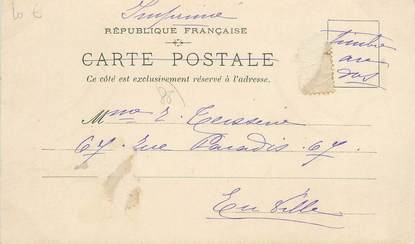 10 €
Imprimé
RÉPUBLIQUE FRANÇAISE
CARTE POSTALE
Ce côté est exclusivement réservé à l'adresse.
timbre
au
dos
Mme E. Teisseire
67 Rue Paradis 67
En Ville